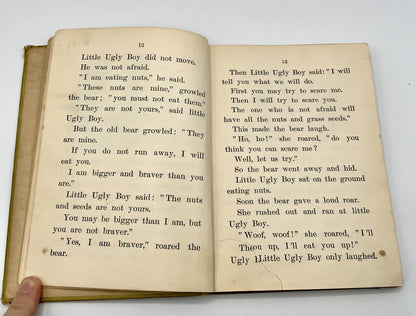 12
Little Ugly Boy did not move.
He was not afraid.
"I am eating nuts," he said.
"These nuts are mine," growled
the bear; "you must not eat them."
"They are not yours," said little
Ugly Boy.
But the old bear growled: "They
are mine.
If you do not run away, I will
eat you.
I am bigger and braver than you
are."
Little Ugly Boy said: "The nuts
and seeds are not yours.
You may be bigger than I am, but
you are not braver."
"Yes, I am braver," roared the
bear.
13
Then Little Ugly Boy said: "I will
tell you what we will do.
First you may try to scare me.
Then I will try to scare you.
The one who is not afraid will
have all the nuts and grass seeds."
This made the bear laugh.
"Ho, ho!" she roared, "do you
think you can scare me?
Well, let us try."
So the bear went away and hid.
Little Ugly Boy sat on the ground
eating nuts.
Soon the bear gave a loud roar.
She rushed out and ran at little
Ugly Boy.
"Woof, woof!" she roared, "I'll
you up, I'll eat you up!"
Ugly Little Ugly Boy only laughed.